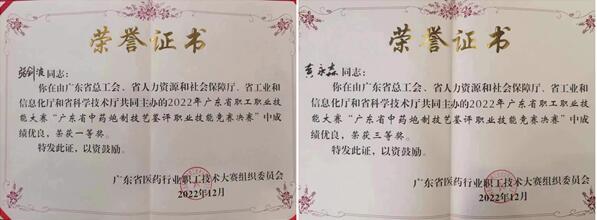 荣誉证书
张钊波同志：
你在由广东省总工会、省人力资源和社会保障厅、省工业和
信息化厅和省科学技术厅共同主办的2022年广东省职工职业技
能大赛“广东省中药炮制技艺鉴评职业技能竞赛决赛”中成
绩优良，荣获一等奖。
特发此证，以资鼓励。
广东省医药行业职工技术大赛组织委员会
2022年12月
荣誉证书
黄永淼同志：
你在由广东省总工会、省人力资源和社会保障厅、省工业和
信息化厅和省科学技术厅共同主办的2022年广东省职工职业技
能大赛“广东省中药炮制技艺鉴评职业技能竞赛决赛”中成
绩优良，荣获三等奖。
特发此证，以资鼓励！
广东省医药行业职工技术大赛组织委员会
2022年12月